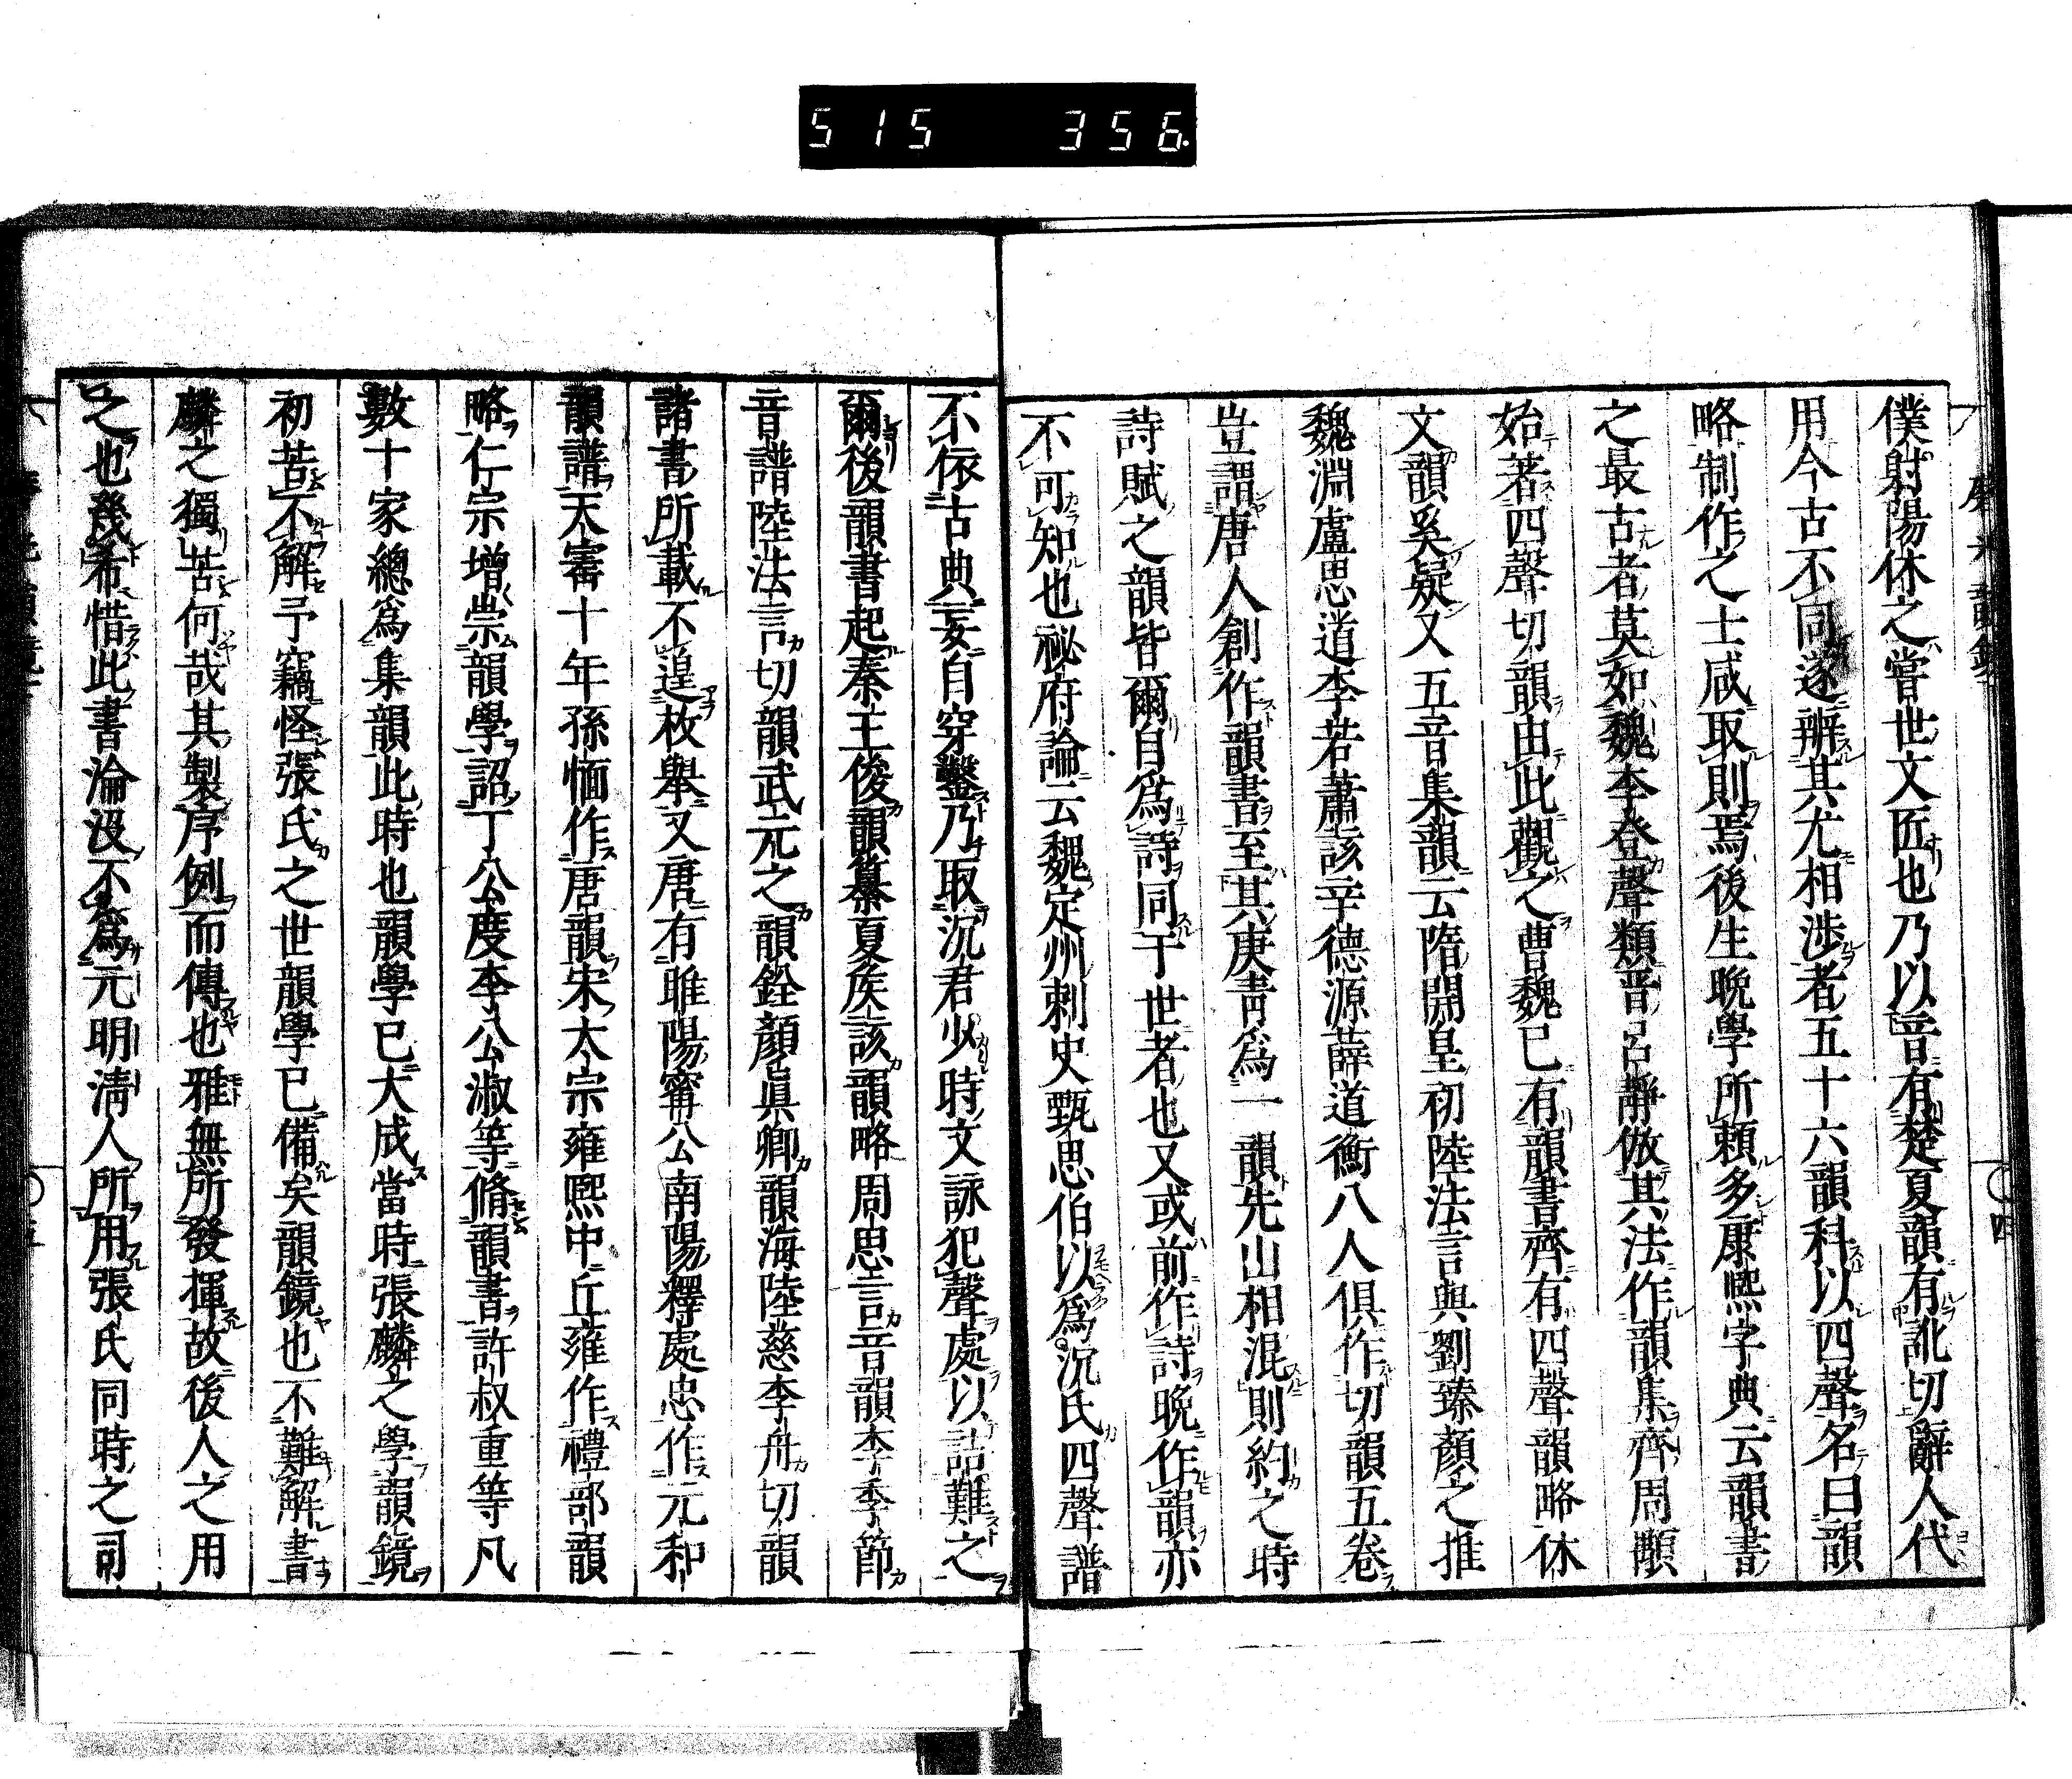 515 356
僕射陽休之嘗世文匠也乃以音有楚夏韻有訛切辭人代
用今古不同遂辨其尤相渉者五十六韻科以四聲名曰韻
略制作之士咸取則焉後生晩學所頼多康熙字典云韻書
之最古者莫如魏李登聲類晋呂靜倣其法作韻集齊周顒
始著四聲切韻由此觀之曹魏已有韻書齊有四聲韻略休
文韻奚疑又五音集韻云隋開皇初陸法言與劉臻顏之推
魏淵盧思道李若蕭該辛德源薛道衡八人俱作切韻五卷
豈謂唐人創作韻書至其庚青爲一韻先山相混則約之時
詩賦之韻皆爾自爲詩同于世者也又或前作詩晩作韻亦
不可知也祕府論云魏定州刺史甄思伯以爲沉氏四聲譜
不依古典妄自穿鑿乃取沉君少時文詠犯聲處以詰難之
爾後韻書起秦王俊韻纂夏矦該韻略周思言音韻李季節
音譜陸法言切韻武元之韻銓顏眞卿韻海陸慈李舟切韻
諸書所載不遑枚舉又唐有睢陽甯公南陽釋處忠作元和
韻譜天寳十年孫愐作唐韻宋大宗雍熙中丘雍作禮部韻
略仁宗增崇韻學詔丁公度李公淑等脩韻書許叔重等凡
數十家總爲集韻此時也韻學已大成當時張麟之學韻鏡
初苦不解予竊怪張氏之世韻學已備矣韻鏡也不難解書
麟之獨苦何哉其製序例而傳也雅無所發揮故後人之用
之也幾希惜此書淪沒不爲元明淸人所用張氏同時之司